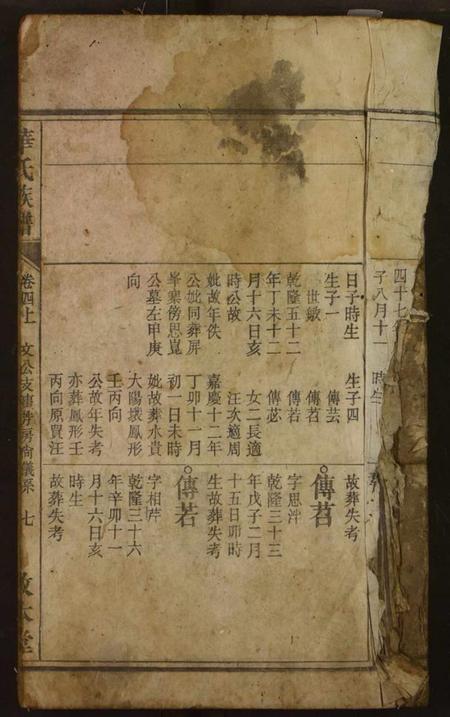 四十七
子八月十一
時生
日子時生
生子一
世敏
乾隆五十二
年丁未十二
月十六日亥
時公故
妣故年佚
公妣同葬屏
峯寨傍思嵬
公墓左甲庚
向
生子四
傳芸
傳茗
傳若
傳苾
女二長適
汪次適周
嘉慶十二年
丁卯十一月
初一日未時
妣故葬水貴
大陽㘭鳳形
壬丙向
公故年失考
亦葬鳳形壬
丙向原買汪
故葬失考
傳茗
字思泮
乾隆三十三
年戊子二月
十五日卯時
生故葬失考
傳若
字相芹
乾隆三十六
年辛卯十一
月十六日亥
時生
故葬失考
華氏族譜
卷四上
文公支
房尙儀系
七
敦本堂